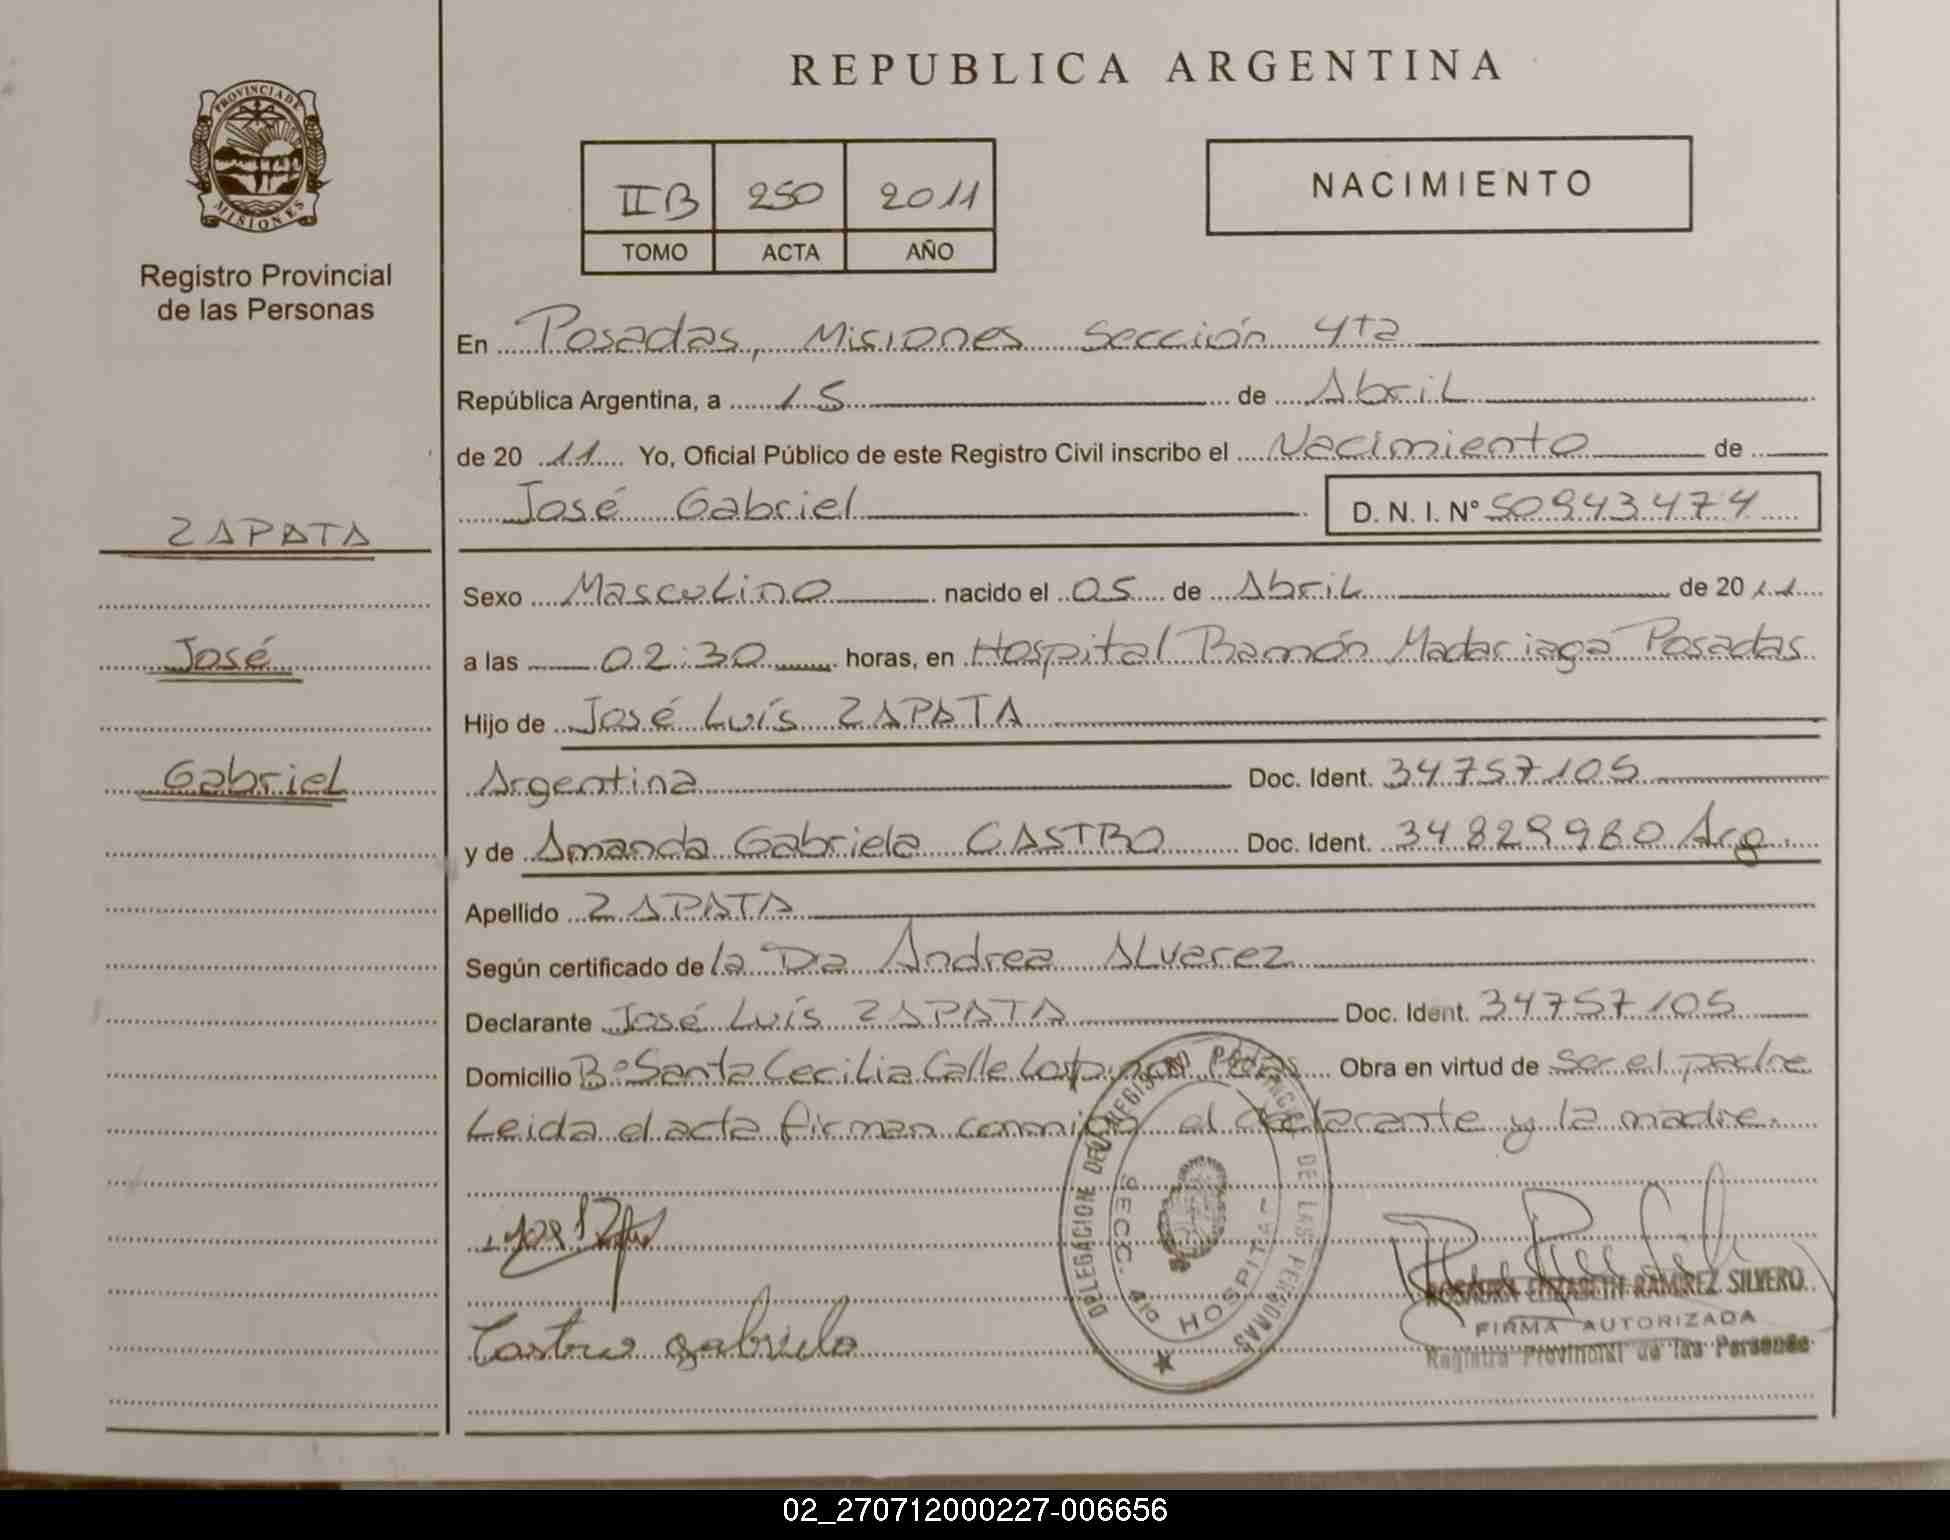 REPUBLICA ARGENTINA
PROVINCIA DE
MISIONES
Registro Provincial
de las Personas
IIB 250 2011
TOMO ACTA AÑO
NACIMIENTO
En Posadas, Misiones Sección 4ta
República Argentina, a 15 de Abril
de 20 11 Yo, Oficial Público de este Registro Civil inscribo el Nacimiento de
José Gabriel D. N. I. Nº 50943474
ZAPATA
José
Gabriel
Sexo Masculino nacido el 05 de Abril de 20 11
a las 02:30 horas, en Hospital Ramón Madariaga Posadas
Hijo de José Luís ZAPATA
Argentina Doc. Ident. 34757105
y de Amanda Gabriela CASTRO Doc. Ident. 34829980 Arg.
Apellido ZAPATA
Según certificado de la Dra Andrea Alvarez
Declarante José Luís ZAPATA Doc. Ident. 34757105
Domicilio Bº Santa Cecilia Calle Obra en virtud de ser el padre
Leida el acta firman conmigo el declarante y la madre.
DELEGACION DEL REGISTRO DE LAS PERSONAS
SECC. 4ta HOSPITAL
Castro gabriela
ELIZABETH RAMIREZ SILVERO
FIRMA AUTORIZADA
Registro Provincial de las Personas
02_270712000227-006656